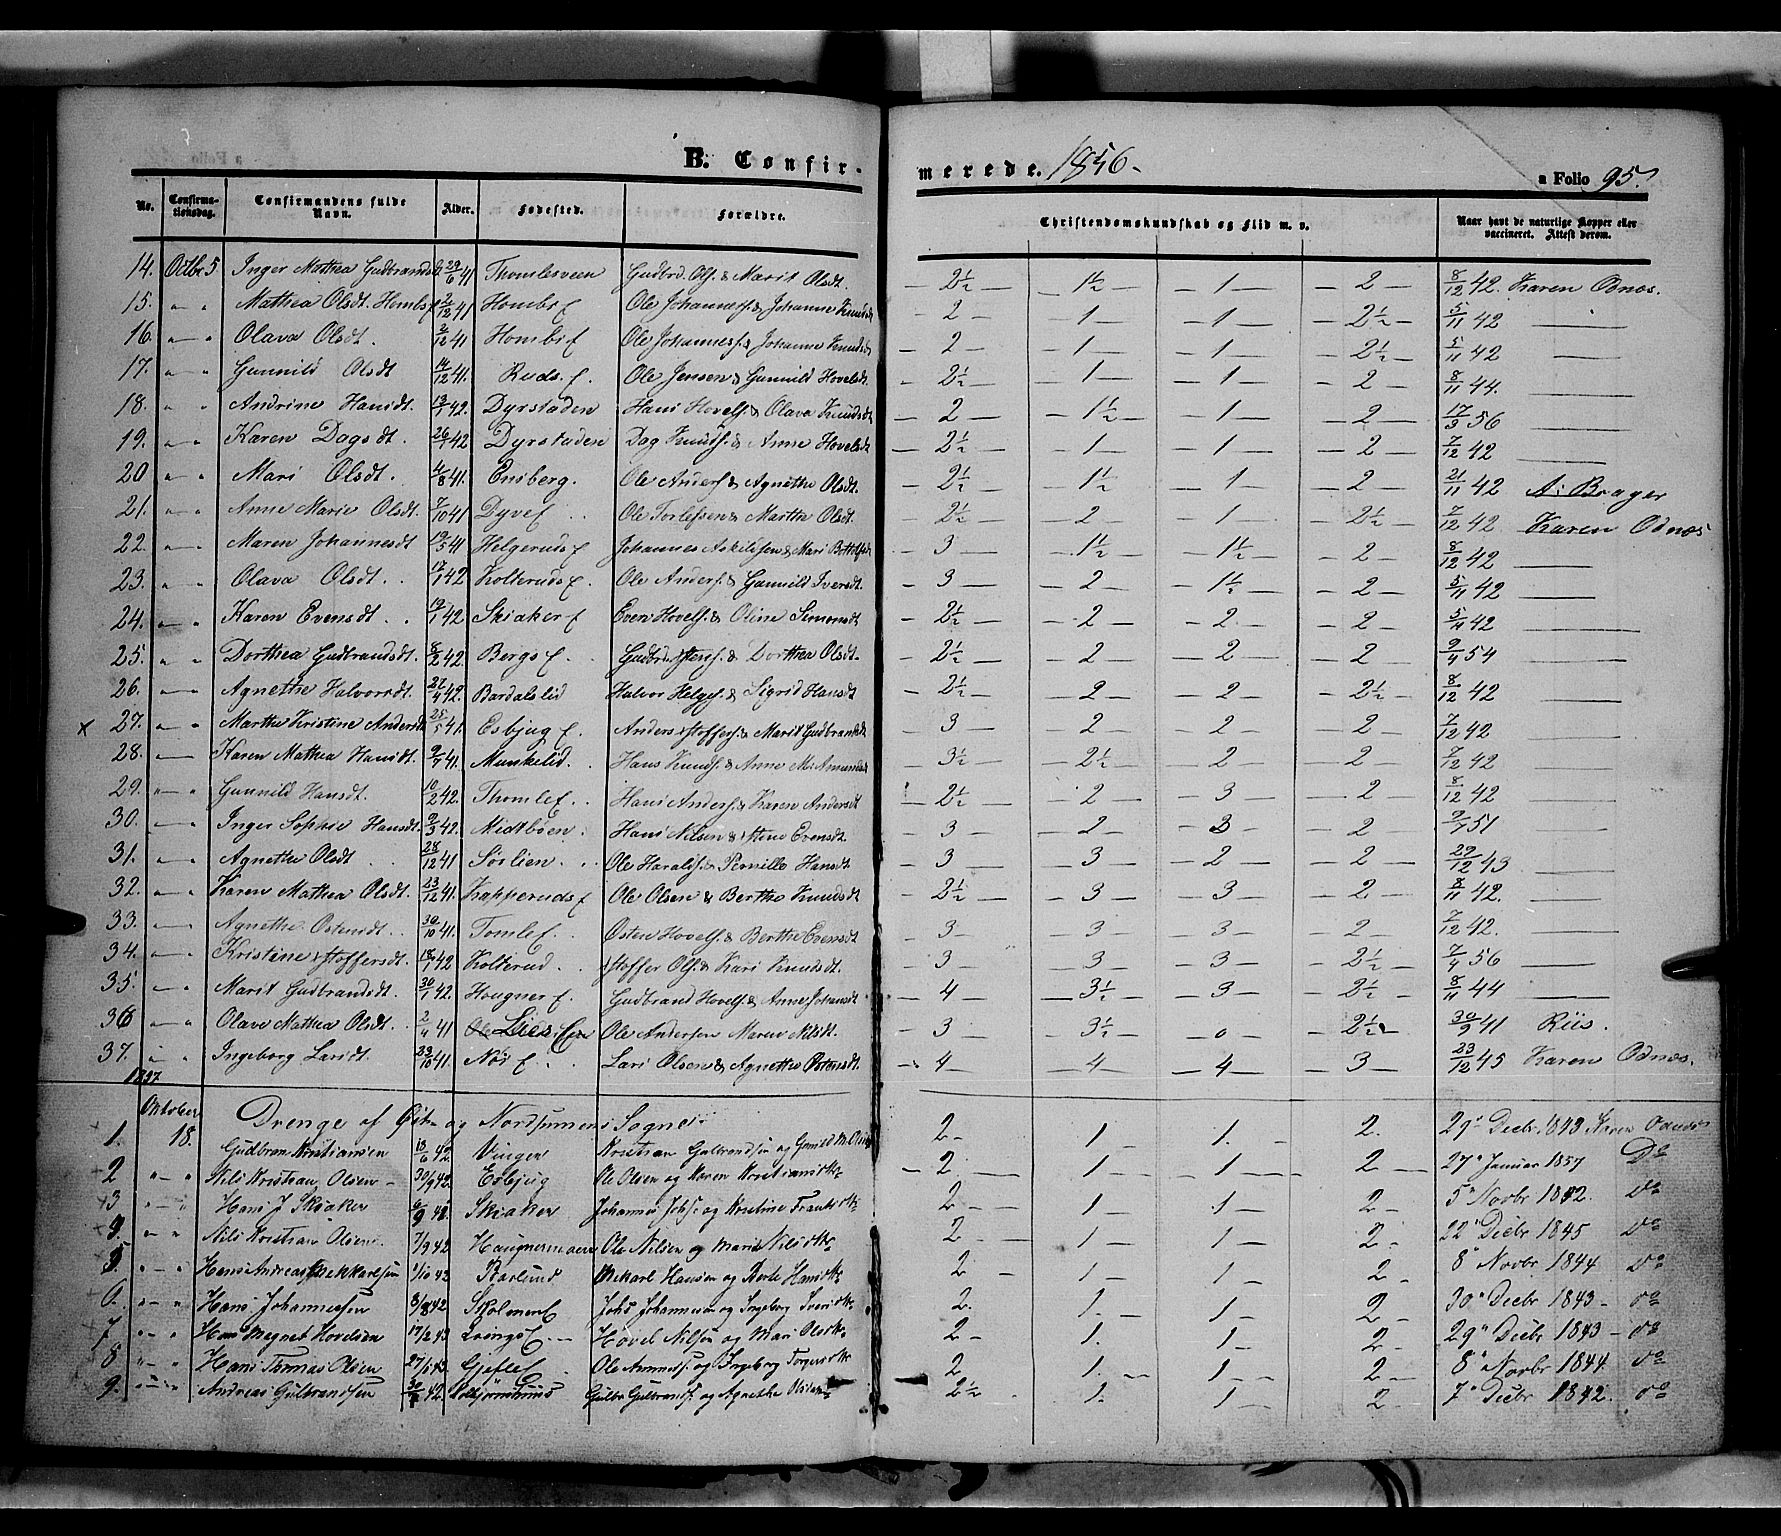 B. Confir-
merede. 1856.
a Folio 95.
No. Confirma-tionsdag. Confirmandens fulde Navn. Alder. Fødested. Forældre. Christendomskundskab og Flid m. v. Naar havt de naturlige Kopper eller vaccineret. Attest derom.
14. Octbr 5 Inger Mathea Gudbrandsd 29/6 41 Thomlesveen Gudbrd. Ols. & Marit Olsdt. 2½ 1½ 1 2 8/12 42. Karen Odnæs.
15. " " Mathea Olsdt. Hombsf 2/12 41 Hombsf Ole Johanness. & Johanne Knudsdt 2 1 1 2½ 5/11 42 —
16. — " Olava Olsdt. 2/12 41 Hombsf Ole Johanness. & Johanne Knudsdt 2 1 1 2½ 5/11 42 —
17. " " Gunnild Olsdt 14/12 41. Ruds f. Ole Jensen & Gunnild Hovelsdt. 2½ 1 1 2 8/11 44. —
18. " " Andrine Hansdt. 13/1 42. Dyrstaden Hans Hovels. & Olava Knudsdt 2 1½ 1 2 17/3 56 —
19. " " Karen Dagsdt. 26/1 42 Dyrstaden Dag Knuds. & Anne Hovelsdt 2½ 1 1 2 7/12 42 —
20 " " Mari Olsdt. 4/8 41. Ensberg. Ole Anders. & Agnethe Olsdt. 2½ 1½ 1 2 21/11 42 A: Brager
21. " " Anne Marie Olsdt. 7/10 41 Dyvef Ole Torlefsen & Marthe Olsdt. 2½ 2 1 2½ 7/12 42. Karen Odnæs
22. " " Maren Johannesdt 19/5 41 Helgeruds f Johannes Askildsen & Mari Bottolfsdt 3 1½ 1½ 2 8/12 42 —
23. " " Olava Olsdt. 17/1 42 Kolteruds f. Ole Anders. & Gunnild Iversdt. 3 2 1½ 2 5/11 42 —
24. — " Karen Evensdt 19/1 42 Skiaker f Even Hovels. & Oline Simensdt 2½ 2 2 2 5/11 42 —
25. " " Dorthea Gudbrandsdt. 8/2 42. Bergs f. Gudbrd. & Dorthea Olsdt. 2½ 2 2 2 9/4 54 —
26. — " Agnethe Halvorsdt 27/4 42. Bardalslid Halvor Helges. & Sigrid Hansdt 2½ 2 2 2½ 8/12 42 —
x 27. " " Marthe Kristine Andersdt 25/5 41. Esbjug f. Anders Stoffers. & Marit Gudbrandsdt 3 2 2 2 7/12 42 —
28. — Karen Mathea Hansdt. 9/7 41. Munkelid. Hans Knuds. & Anne M. Amundsdt 3½ 2½ 2 2 7/12 42 —
29. " " Gunnild Hansdt. 10/2 42. Thomlef. Hans Anders. & Karen Andersdt 2½ 2 3 2 8/12 42 —
30. — " Inger Sophie Hansdt. 9/3 42. Midtböen. Hans Nilsen & Stine Evensdt. 3 2 3 2 9/7 51 —
31. — " Agnethe Olsdt 28/12 41 Sörlien. Ole Haralds. & Pernille Hansdt 3 3 2 2 29/12 43 —
32. — " Karen Mathea Olsdt. 23/12 41. Kapperuds f Ole Olsen & Berthe Knudsdt 2½ 3 3 2 8/11 42. —
33. — " Agnethe Ostensdt. 30/10 41. Tomlef. Osten Hovels. & Berthe Evensdt 3 3 3 2 7/12 42. —
34. — " Kristine Stoffersdt. 18/1 42 Kolterud. Stoffer Ols. & Kari Knudsdt. 3 3 3 2½ 7/4 56 —
35. — " Marit Gudbrandsdt. 30/1 42. Hougner f. Gudbrand Hovels. & Anne Johansdt 4 3½ 3 2½ 8/11 44 —
36 — " Olave Mathea Olsdt. 2/4 41 Lies Een Ole Andersen Maren Nilsdt. 3 3½ 0 2½ 30/9 41 Riis.
37. " " Ingeborg Larsdt. 23/10 41. Nös f. Lars Olsen & Agnethe Ostensdt. 4 4 4 3 23/12 45 Karen Odnæs.
1857
Oktober Drenge af Öst- og Nordsinnens Sogne:
1. 18. Gudbran Kristiansen 13/6 42 Vingen Kristian Gulbrandsen og 2 1 1. 2. 29" Decbr. 1843 Karen Odnæs
2 " " Nils Kristian Olsen 30/9 42 Esbjug Ole Olsen og Karen Kristiansdtr. 2 1 1 2 27" Januar 1857 Do
3 " " Hans J. Skiaker 6/9 42 Skiaker Johannes Johs. og Kristine Frantsdtr 2 1 1 2 5" Novbr 1842. do
4. " " Nils Kristian Olsen 7/9 42 Haugnermoen Ole Nilsen og Marie Nilsdtr 2 1 1 2 22" Decbr 1845 do
5 " " Hans Andreas Mekkarlsen 1/10 42 Barlund Mekarl Hansen og Berte Hansdtr 2 1 1 2 8" Novbr 1844 do
6. " " Hans Johannessen 3/8 42 Skolmen E Johs Johannesen og Ingeborg Iversdtr 2. 1. 1 2 30" Decbr 1843 do
7 " " Hans Magnet Hovelsen 17/2 43 E. Hovel Nilsen og Mari Olsdtr 2 1. 1 2 29" Decbr 1843 do
8 " " Hans Tomas Olsen 27/1 43 Gjefle E. Ole Amunds. og Ingeborg Torgersdtr 2 1. 1 2 8" Novbr 1844. do
9. " " Andreas Gulbrandsen 42. Gulbr Gulbrands. og Agnethe 2½ 1. 1 2 7" Decbr 1842. do